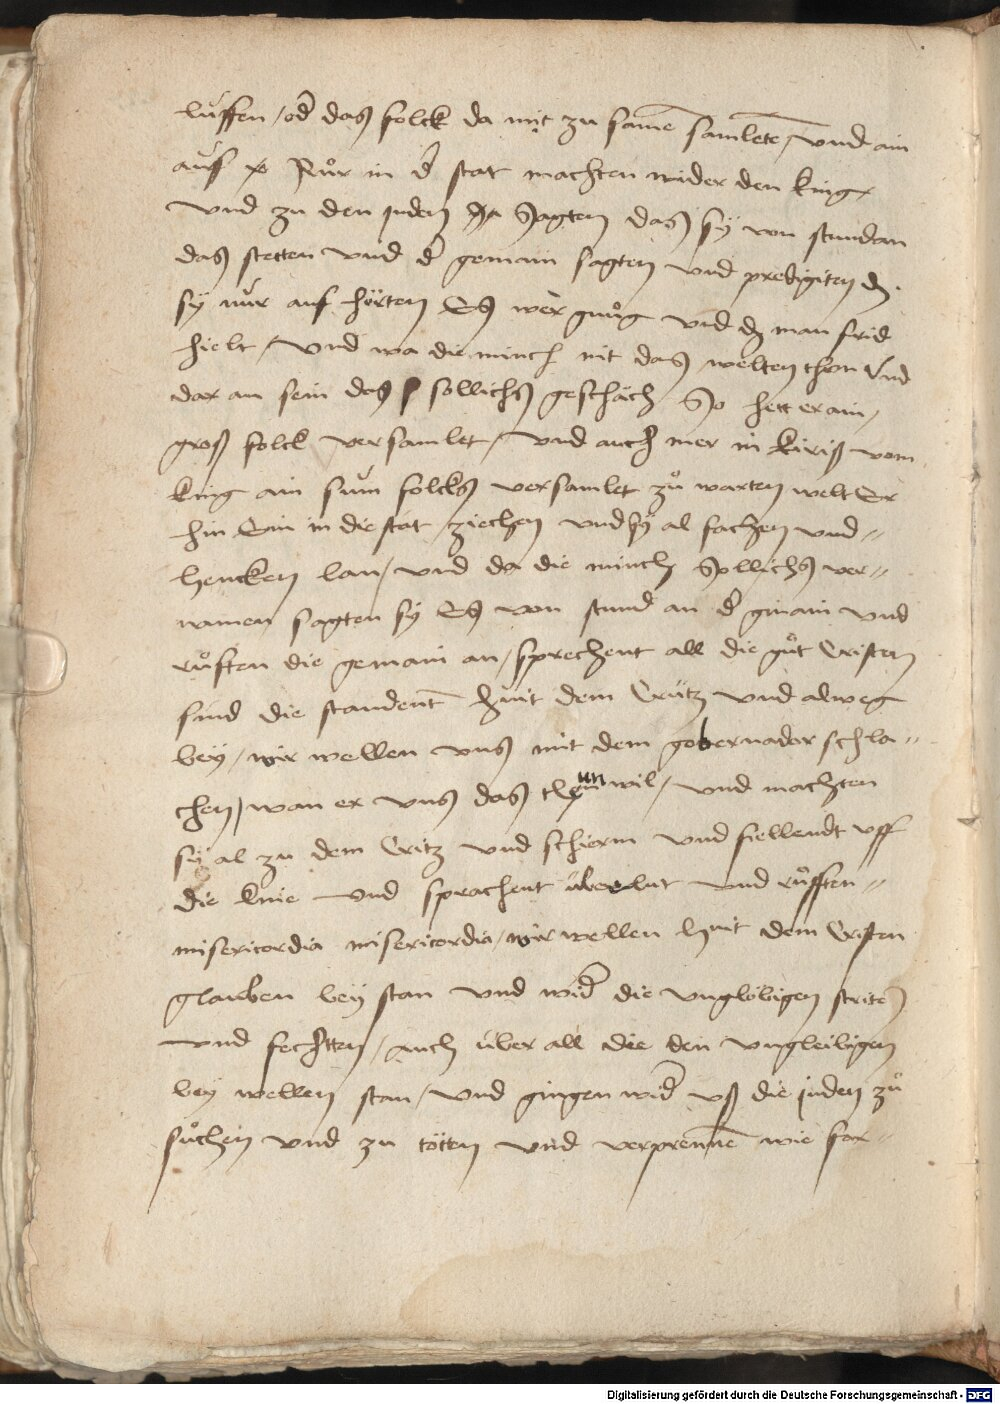 luffen / od̄ das folck da mit zu same̅ samlete̅ / vnd ain
auf Růr in d̄ stat machten wider den king
vnd zu den juden sagten das sy von stundan
das stetten vnd d̄ gemain sagten vnd predigiten dz
sy nur auf hörten Es wer gnůg vnd dz man frid
hielt / vnd wa die minch nit das welten thon vnd
dar an sein das sollichs geschäch So hett er ain /
groß folck versamlet / vnd auch mer in kiriß vom
king ain sum folcks versamlet zů warten welt Er
hin Ein in die stat ziechen vnd sy al fachen vnd
hencken lan / vnd da die minch sollichs ver
namen sagten sy Es von stund an d̄ gmain vnd
růften die gemain an / sprechent all die gůt Cristen
sind die standent hüt dem Crütz vnd alweg
bey / wir wellen vns mit dem gobernador schla
chen / wan er vns das thun wil / vnd machten
sy al zu dem Critz vnd schirm vnd fiellendt vff
die knie vnd sprachent überlut vnd růfften
misericordia misericordia / wir wellen hüt dem Cristen
glauben bey stan vnd wid̄ die vnglöbigen strite̅
vnd fechtten / auch über all die den vngleibigen
bey wellen stan / vnd gingen wid̄ vß die juden zů
sůchen vnd zu tötten vnd verprenne̅ wie for
Digitalisierung gefördert durch die Deutsche Forschungsgemeinschaft - DFG